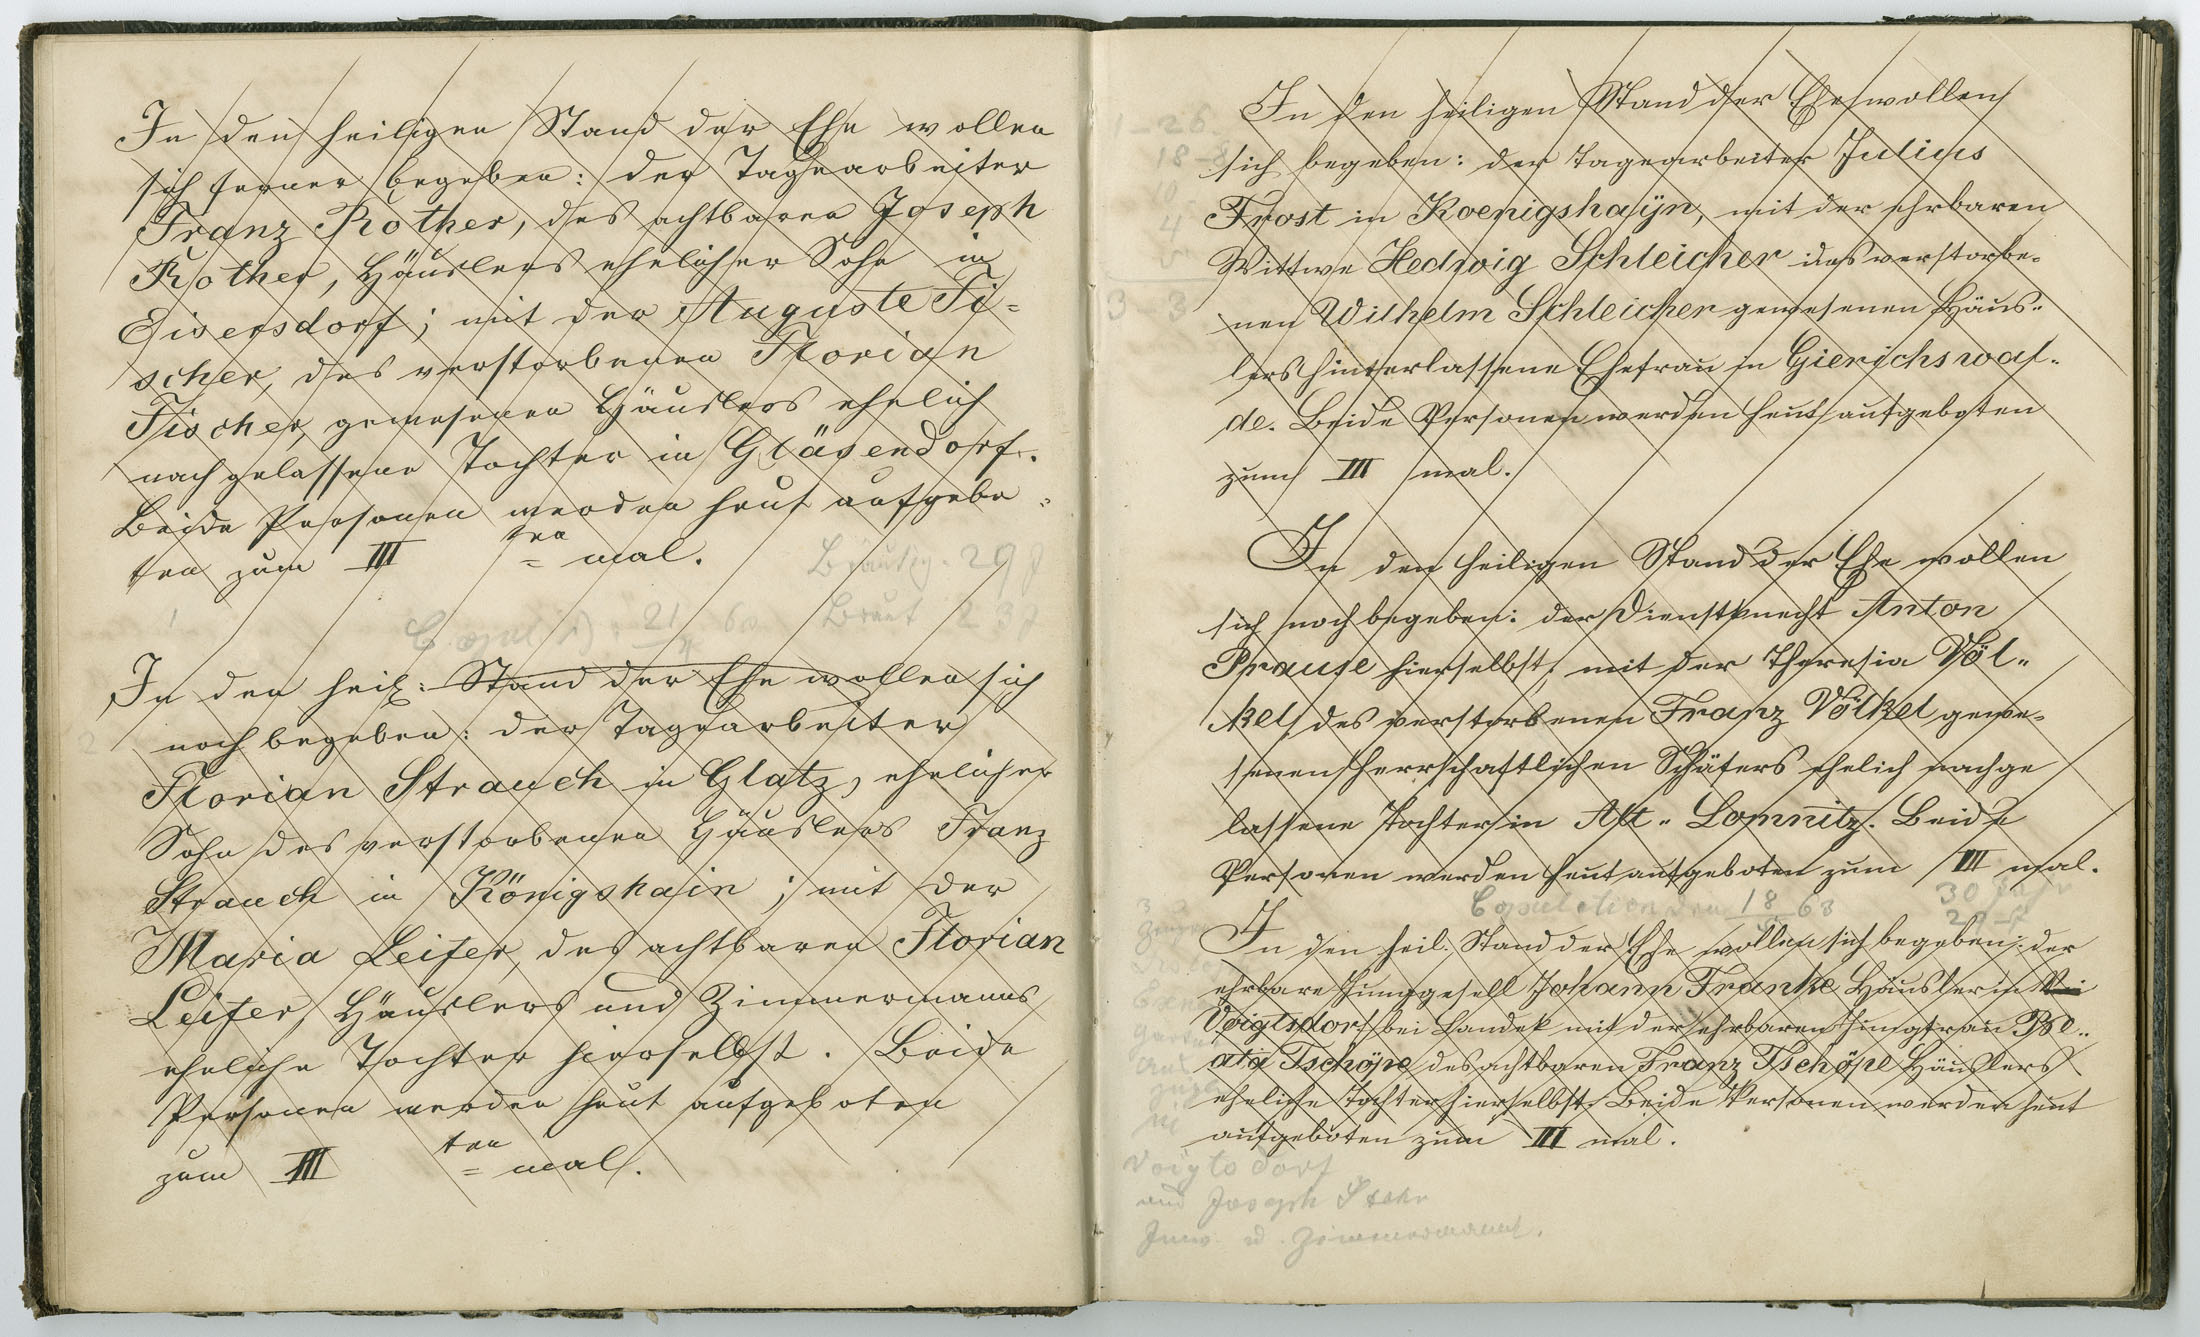 In den heiligen Stand der Ehe wollen
sich ferner begeben: der Tagearbeiter
Franz Rother, des achtbaren Joseph
Rother, Häuslers ehelicher Sohn in
Eisersdorf; mit der Auguste Fi=
scher, des verstorbenen Florian
Fischer, gewesenen Häuslers ehelich
nachgelassene Tochter in Gläsendorf.
Beide Personen werden heut aufgebo=
ten zum III ten mal.
Bräutig. 29 J
Braut 23 J
In den heil: Stand der Ehe wollen sich
noch begeben: der Tagearbeiter
Florian Strauch in Glatz, ehelicher
Sohn des verstorbenen Häuslers Franz
Strauch in Königshain; mit der
Maria Leifer, des achtbaren Florian
Leifer, Häuslers und Zimmermanns
eheliche Tochter hierselbst. Beide
Personen werden heut aufgeboten
zum III ten mal.
In den heiligen Stand der Ehe wollen
sich begeben: der Tagearbeiter Julius
Frost in Koenigshaÿn, mit der ehrbaren
Wittwe Hedwig Schleicher des verstorbe=
nen Wilhelm Schleicher gewesenen Häus=
lers hinterlassene Ehefrau in Gierichswal=
de. Beide Personen werden heut aufgeboten
zum III mal.
In den heiligen Stand der Ehe wollen
sich noch begeben: der Dienstknecht Anton
Prause hierselbst, mit der Theresia Völ=
kel, des verstorbenen Franz Völkel gewe=
senen herrschaftlichen Schäfers ehelich nachge
lassene Tochter in Alt=Lomnitz. Beide
Personen werden heut aufgeboten zum III mal.
Copulation den 18 63
30 Jahr
In den heil. Stand der Ehe wollen sich begeben: der
ehrbare Junggesell Johann Franke Häusler in
Voigtsdorf bei Landek mit der ehrbaren Jungfrau Be=
ata Tschöpe des achtbaren Franz Tschöpe Häuslers
eheliche Tochter hierselbst. Beide Personen werden heut
aufgeboten zum III mal.
Voigtsdorf
und Joseph
Zimmermann.